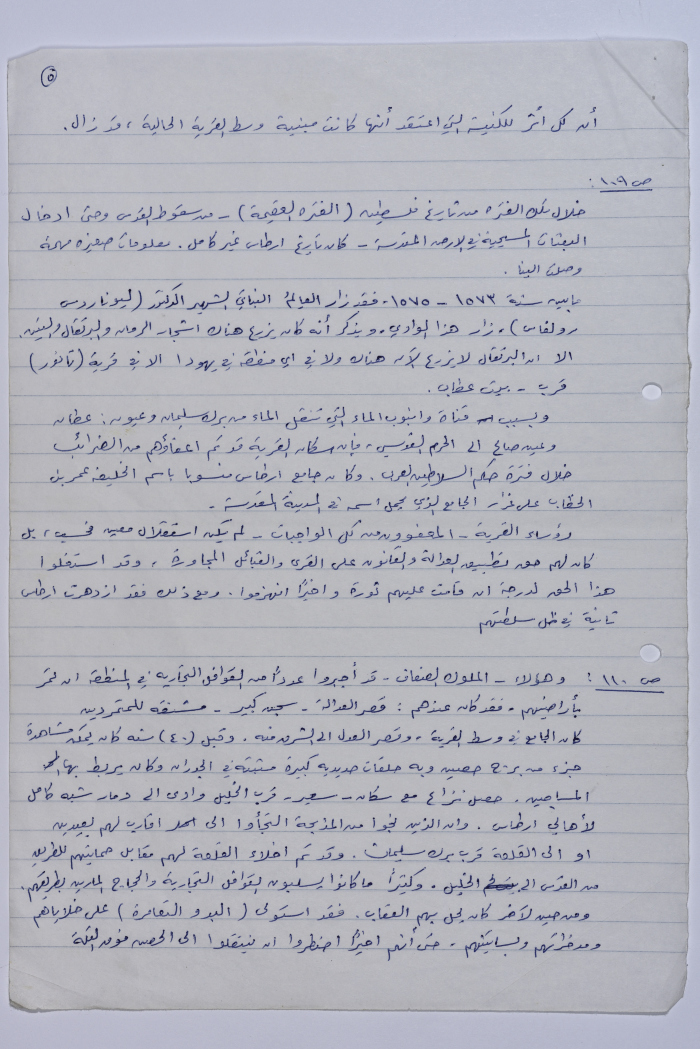 ٥
أن كل أثر للكنيسة التي اعتقد أنها كانت مبنية وسط القرية الحالية ، قد زال.
ص ١٠٩ :
خلال تلك الفترة من تاريخ فلسطين (الفترة العقيمة) - من سقوط القدس وحتى ادخال
البعثات المسيحية في الارض المقدسة - كان تاريخ ارطاس غير كامل . معلومات صغيرة مهمة
وصلت الينا .
ما بين سنة ١٥٧٣ - ١٥٧٥ ، فقد زار العالم النباتي الشهير الدكتور (ليوناردس
رولفاس) ، زار هذا الوادي ، ويذكر أنه كان يزرع هناك اشجار الرمان والبرتقال والتين.
الا ان البرتقال لا يزرع الآن هناك ولا في اي منطقة في يهودا الا في قرية (تانور)
قرب - بيت عطاب .
وبسبب قناة وانبوب الماء التي تنقل الماء من برك سليمان وعيون : عطان
وعين صالح الى الحرم القدسي ، فان سكان القرية قد تم اعفاؤهم من الضرائب
خلال فترة حكم السلاطين العرب . وكان جامع ارطاس منسوبا باسم الخليفة عمر بن
الخطاب على غرار الجامع الذي يحمل اسمه في المدينة المقدسة .
رؤساء القرية - المعفوون من كل الواجبات - لم يكن استقلال معين فحسب ، بل
كان لهم حق تطبيق العدالة والقانون على القرى والقبائل المجاورة ، وقد استغلوا
هذا الحق لدرجة ان قامت عليهم ثورة واخيرًا انهزموا . ومع ذلك فقد ازدهرت ارطاس
ثانية في ظل سلطتهم
ص ١١٠ : وهؤلاء - الملوك الضعاف - قد أجبروا عددًا من القوافل التجارية في المنطقة ان تمر
بأراضيهم ، فقد كان عندهم : قصر العدالة - سجن كبير - مشنقة للمتمردين
كان الجامع في وسط القرية ، وقصر العدل الى الشرق منه . وقبل (٤٠) سنة كان يمكن مشاهدة
جزء من برج حصين وبه حلقات حديدية كبيرة مثبتة في الجدران وكان يربط بها
المساجين . حصل نزاع مع سكان - سعير - قرب الخليل وادى الى دمار شبه كامل
لأهالي ارطاس . وان الذين نجوا من المذبحة التجأوا الى اقارب لهم بعيدين
او الى القلعة قرب برك سليمان . وقد تم اخلاء القلعة لهم مقابل حمايتهم للطريق
من القدس الى الخليل ، وكثيرًا ما كانوا يسلبون القوافل التجارية والحجاج المارين بطريقهم.
ومن حين لآخر كان يحل بهم العقاب . فقد استولى (البدو التعامرة) على خلاياهم
ومدخراتهم وبساتينهم ، حتى أنهم اخيرًا اضطروا ان ينتقلوا الى الحصن فوق التلة